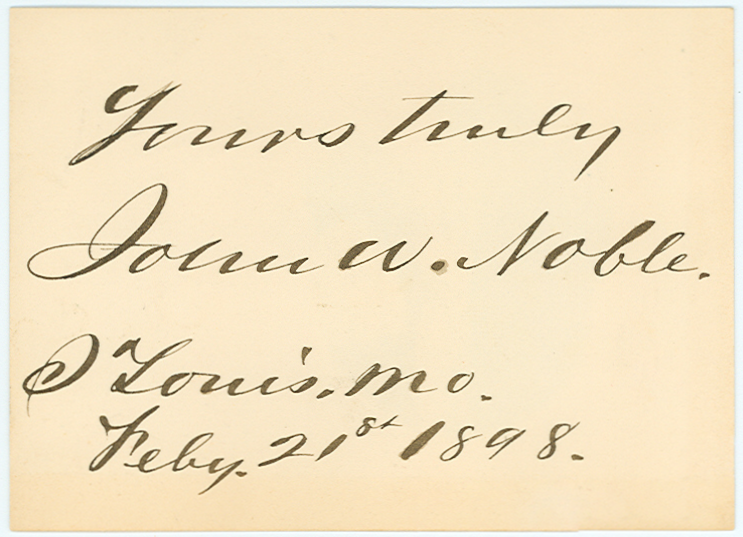 Yours truly
John W. Noble.
St Louis. Mo.
Feby. 21st 1898.